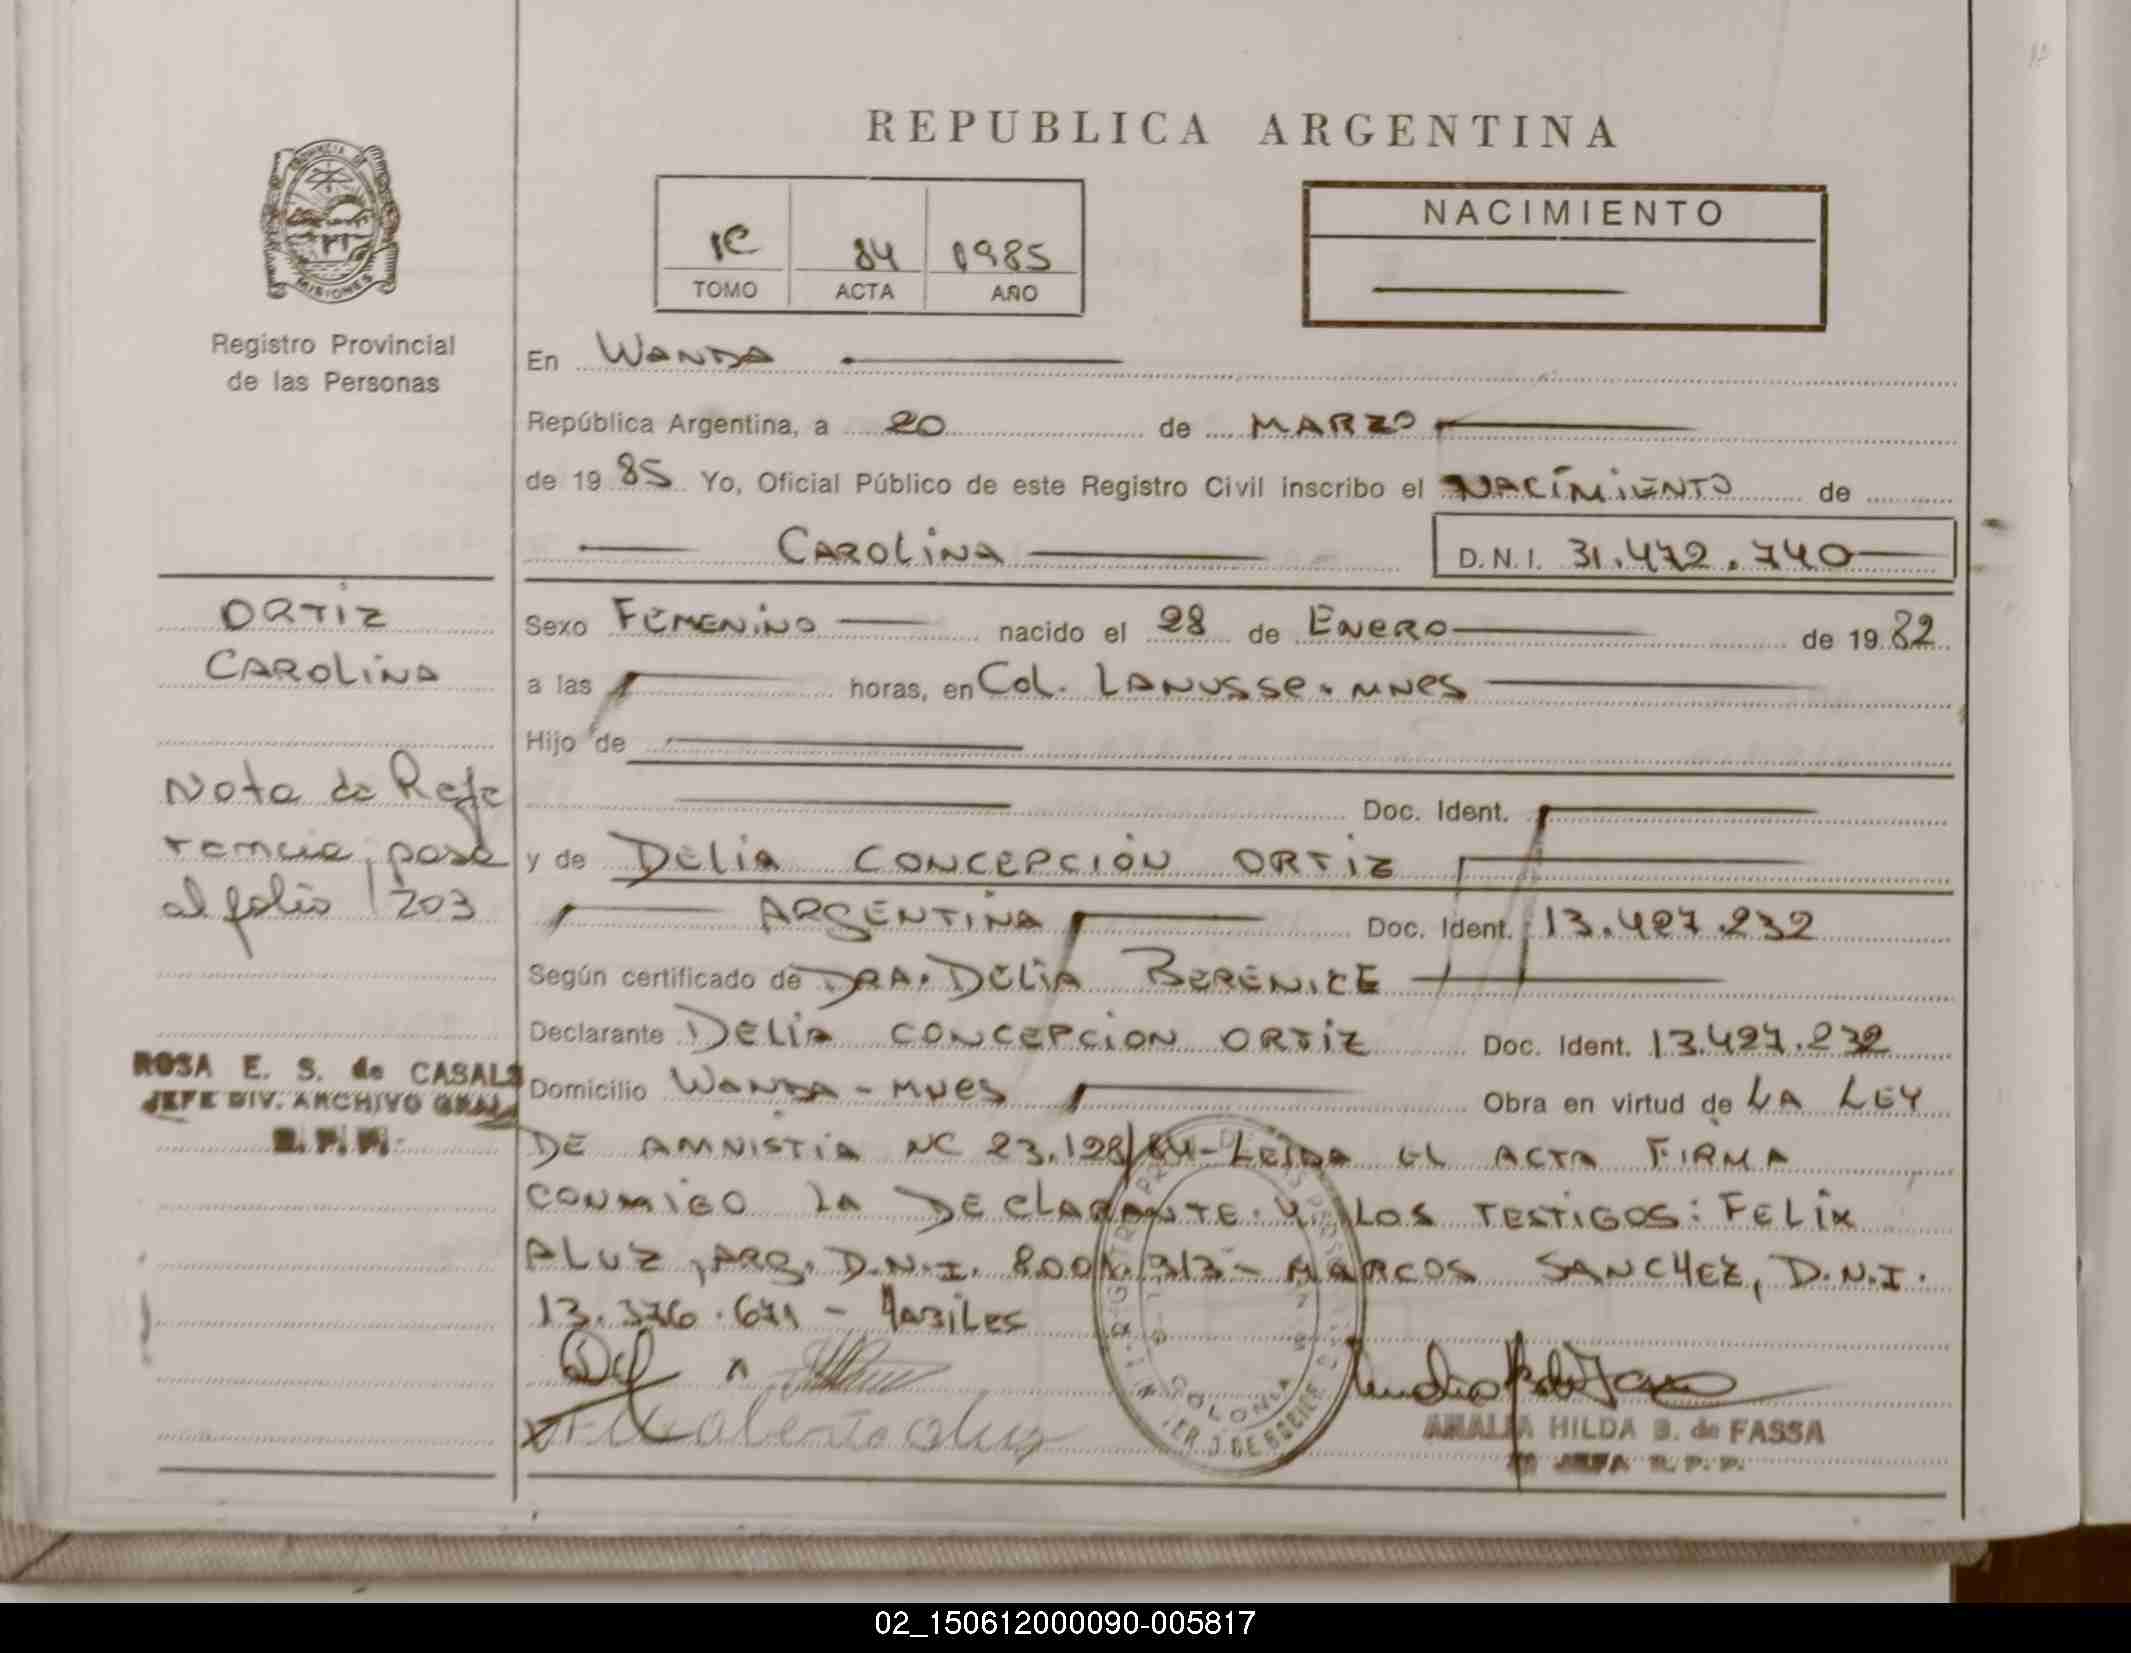 REPUBLICA ARGENTINA
PROVINCIA DE
MISIONES
Registro Provincial
de las Personas
1C 84 1985
TOMO ACTA AÑO
NACIMIENTO
En WANDA
República Argentina, a 20 de MARZO
de 1985 Yo, Oficial Público de este Registro Civil inscribo el NACIMIENTO de
CAROLINA D.N.I. 31.472.740
ORTIZ
CAROLINA
Nota de Refe
rencia, pasa
al folio 203
ROSA E. S. de CASALS
JEFE DIV. ARCHIVO GRAL
R. P. P.
Sexo FEMENINO nacido el 28 de ENERO de 1982
a las horas, en COL. LANUSSE. MNES
Hijo de
Doc. Ident.
y de DELIA CONCEPCION ORTIZ
ARGENTINA Doc. Ident. 13.427.232
Según certificado de DRA. DELIA BERENICE
Declarante DELIA CONCEPCION ORTIZ Doc. Ident. 13.427.232
Domicilio WANDA - MNES Obra en virtud de LA LEY
DE AMNISTIA NC 23.128/84 - LEIDA EL ACTA FIRMA
CONMIGO LA DECLARANTE Y LOS TESTIGOS: FELIX
ALUZ, ARG. D.N.I. 8.001.313 - MARCOS SANCHEZ, D.N.I.
13.376.671 - HABILES
COLONIA
AMALIA HILDA B. de FASSA
JEFA R. P. P.
02_150612000090-005817